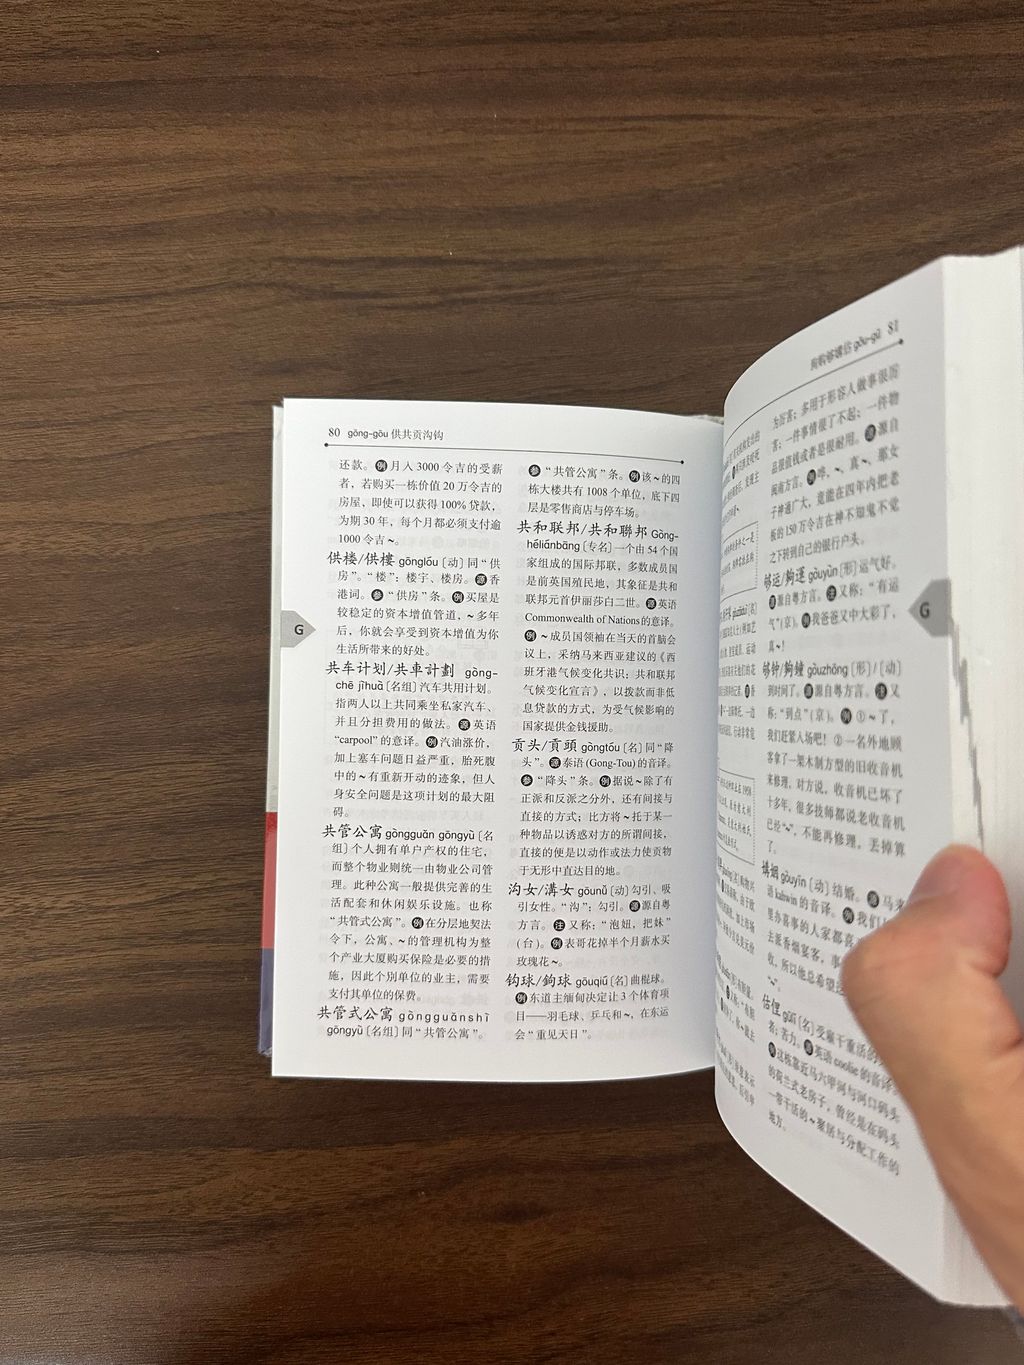 80 gōng–gōu 供共贡沟钩
还款。例月入 3000 令吉的受薪
者，若购买一栋价值 20 万令吉的
房屋，即使可以获得 100% 贷款，
为期 30 年，每个月都必须支付逾
1000 令吉～。
供楼/供樓 gōnglóu〔动〕同“供
房”。“楼”：楼宇、楼房。源香
港词。参“供房”条。例买屋是
较稳定的资本增值管道，～多年
后，你就会享受到资本增值为你
生活所带来的好处。
共车计划/共車計劃 gòng-
chē jìhuà〔名组〕汽车共用计划。
指两人以上共同乘坐私家汽车、
并且分担费用的做法。源英语
“carpool”的意译。例汽油涨价，
加上塞车问题日益严重，胎死腹
中的～有重新开动的迹象，但人
身安全问题是这项计划的最大阻
碍。
共管公寓 gòngguǎn gōngyù〔名
组〕个人拥有单户产权的住宅，
而整个物业则统一由物业公司管
理。此种公寓一般提供完善的生
活配套和休闲娱乐设施。也称
“共管式公寓”。例在分层地契法
令下，公寓、～的管理机构为整
个产业大厦购买保险是必要的措
施，因此个别单位的业主，需要
支付其单位的保费。
共管式公寓 gòngguǎnshì
gōngyù〔名组〕同“共管公寓”。
参“共管公寓”条。例该～的四
栋大楼共有 1008 个单位，底下四
层是零售商店与停车场。
共和联邦/共和聯邦 Gòng-
héliánbāng〔专名〕一个由 54 个国
家组成的国际邦联，多数成员国
是前英国殖民地，其象征是共和
联邦元首伊丽莎白二世。源英语
Commonwealth of Nations的意译。
例～成员国领袖在当天的首脑会
议上，采纳马来西亚建议的《西
班牙港气候变化共识：共和联邦
气候变化宣言》，以拨款而非低
息贷款的方式，为受气候影响的
国家提供金钱援助。
贡头/貢頭 gòngtóu〔名〕同“降
头”。源泰语 (Gong-Tou) 的音译。
参“降头”条。例据说～除了有
正派和反派之分外，还有间接与
直接的方式；比方将～托于某一
种物品以诱惑对方的所谓间接，
直接的便是以动作或法力使贡物
于无形中直达目的地。
沟女/溝女 gōunǚ〔动〕勾引、吸
引女性。“沟”：勾引。源源自粤
方言。注又称：“泡妞，把妹”
（台）。例表哥花掉半个月薪水买
玫瑰花～。
钩球/鉤球 gōuqiú〔名〕曲棍球。
例东道主缅甸决定让 3 个体育项
目——羽毛球、乒乓和～，在东运
会“重见天日”。
G
gǒu–gū 81
为厉害；多用于形容人做事很厉
害；一件事情很了不起；一件物
品很值钱或者是很耐用。源源自
闽南方言。例哗，～，真～，那女
子神通广大，竟能在四年内把老
板的 150 万令吉在神不知鬼不觉
之下转到自己的银行户头。
够运/夠運 gòuyùn〔形〕运气好。
源源自粤方言。注又称：“有运
气”（京）。例我爸爸又中大彩了，
真～！
够钟/夠鐘 gòuzhōng〔形〕/〔动〕
到时间了。源源自粤方言。注又
称：“到点”（京）。例①～了，
我们赶紧入场吧！②一名外地顾
客拿了一架木制方型的旧收音机
来修理，对方说，收音机已坏了
十多年，很多技师都说老收音机
已经“～”，不能再修理，丢掉算
了。
gòuyīn〔动〕结婚。源马来
语 kahwin 的音译。例我们
里办喜事的人家都喜
去派香烟宴客，事
收，所以他总希望
“～”。
估俚 gūlǐ〔名〕受雇干重活的
者；苦力。源英语 coolie 的音译
例这栋靠近马六甲河与河口码头
的荷兰式老房子，曾经是在码头
一带干活的～聚居与分配工作的
地方。
G